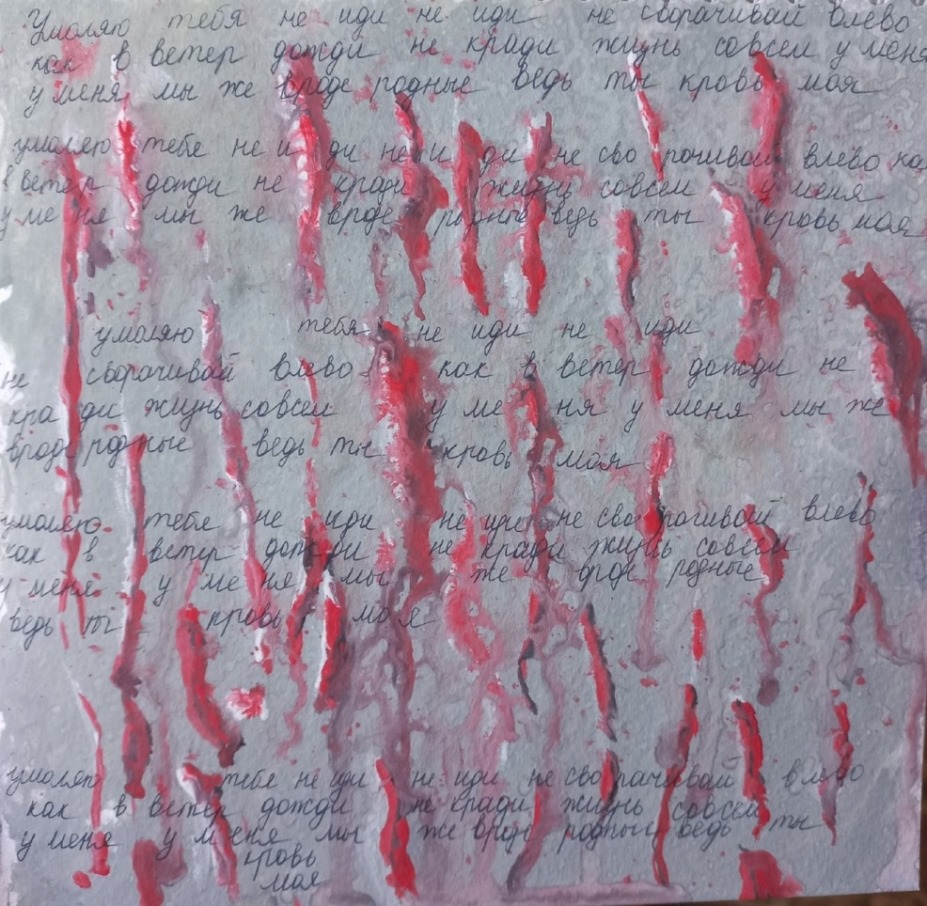 Умоляю тебя не иди не иди не сворачивай влево
как в ветер дожди не кради жизнь совсем у меня
у меня мы же вроде родные ведь ты кровь моя
умоляю тебе не и ди не и ди не сво рачивай влево ка
в ветер дожди не кради жизнь совсем у меня
у ме ня мы же вроде родные ведь ты кровь моя
умоляю тебя не иди не иди
не сворачивай влево как в ветер дожди не
кра ди жизнь совсем у ме ня у меня мы же
вроде родные ведь ты кровь моя
умоляю тебе не иди не иди не сво рачивай влево
как в ветер дожди не кради жизнь совсем
у меня у ме ня мы же вроде родные
ведь ты кровь мо я
умоляю тебе не иди не иди не сво рачивай влево
как в ветер дожди не кради жизнь совсем
у меня у меня мы же вроде родные ведь ты
кровь
моя